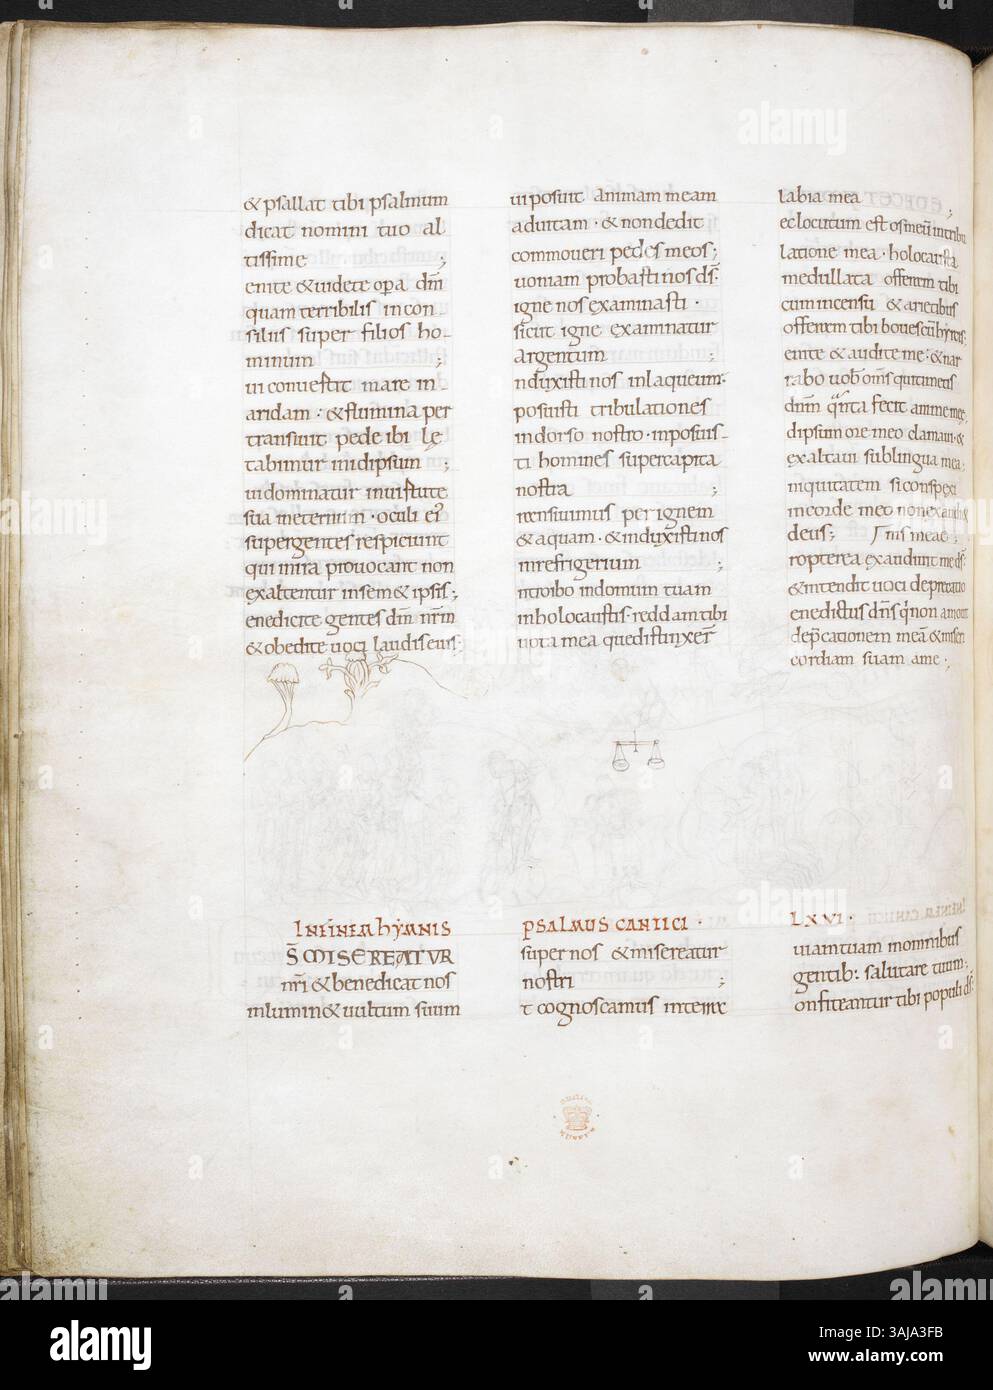 & psallat tibi psalmum
dicat nomini tuo al
tissime ;
enite & uidete opa dm̄
quam terribilis in con
siliis super filios ho-
minum ;
ui conuertit mare in
aridam · & flumina per
transiuit pede ibi lę
tabimur inidipsum ;
ui dominatur inuirtute
sua ineternum · oculi ei'
supergentes respiciunt
qui inira prouocant non
exaltentur insem& ipsis;
enedicite gentes dm̄ nr̄m
& obedite uoci laudis eius;
ui posuit animam meam
aduitam · & non dedit
commoueri pedes meos;
uoniam probasti nos ds̄
igne nos examinasti ·
sicut igne examinatur
argentum ;
nduxisti nos inlaqueum·
posuisti tribulationes
indorso nostro · inposuis-
ti homines supercapita
nostra ;
ransiuimus per ignem
& aquam · & induxisti nos
inrefrigerium ;
ntroibo indomum tuam
inholocaustis · reddam tibi
uota mea que distinxer̄
labia mea ;
& locutum est os meū intribu
latione mea · holocausta
medullata offeram tibi
cum incensu & arietibus
offeram tibi boues cū hyrcis;
enite & audite me · & nar
rabo uob̄ om̄s qui timetis
dn̄m qᵃnta fecit anime meę
dipsum ore meo clamaui · &
exaltaui sublingua mea;
iniquitatem si conspexi
incorde meo non exaudi&
deus; ropterea exaudiuit me ds̄
& intendit uoci deprecatio
nis meae ;
enedictus dn̄s q̄ non amouit
dep̄cationem meā & miseri
cordiam suam ame ;
INFINEM hYMNIS PSALMUS CANTICI · LXVI ·
S̄ MISEREATUR
nr̄i & benedicat nos
inlumin& uultum suum
super nos & misereatur
nostri ;
t cognoscamus interra
uiam tuam inomnibus
gentib: salutare tuum;
onfiteantur tibi populi ds̄
alamy
3AJA3FB
www.alamy.com